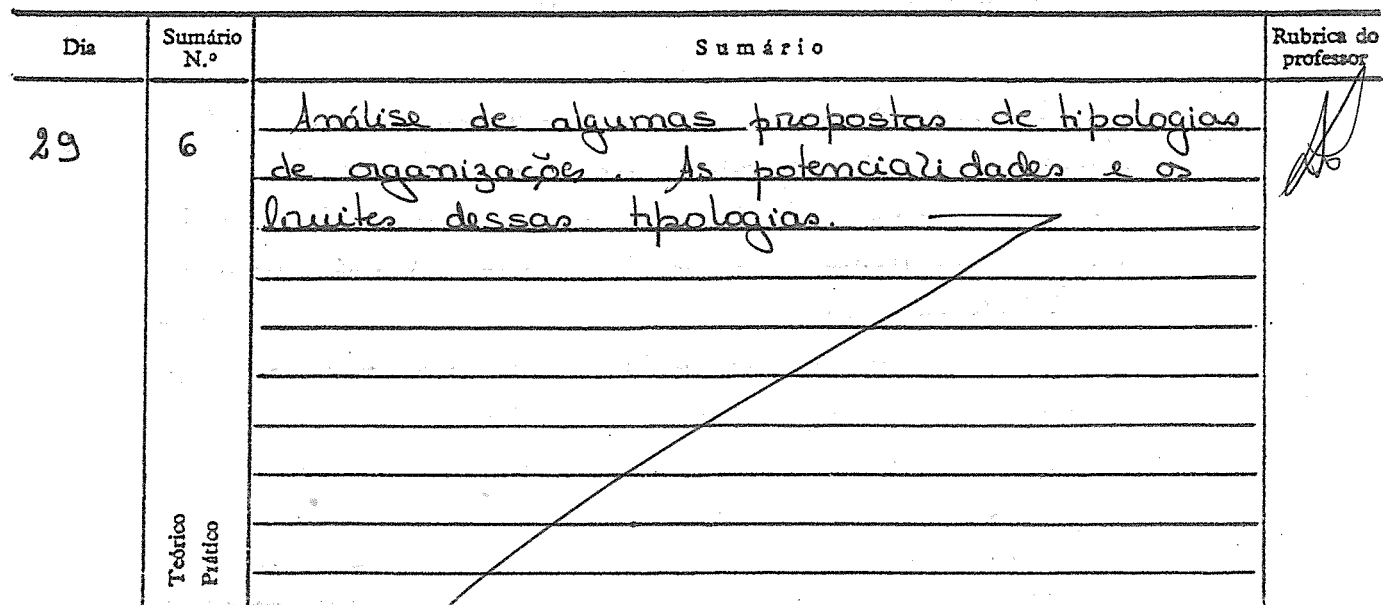 Dia Sumário N.º Sumário Rubrica do professor
29 6 Análise de algumas propostas de tipologias
de organizações. As potencialidades e os
limites dessas tipologias.
Teórico
Prático